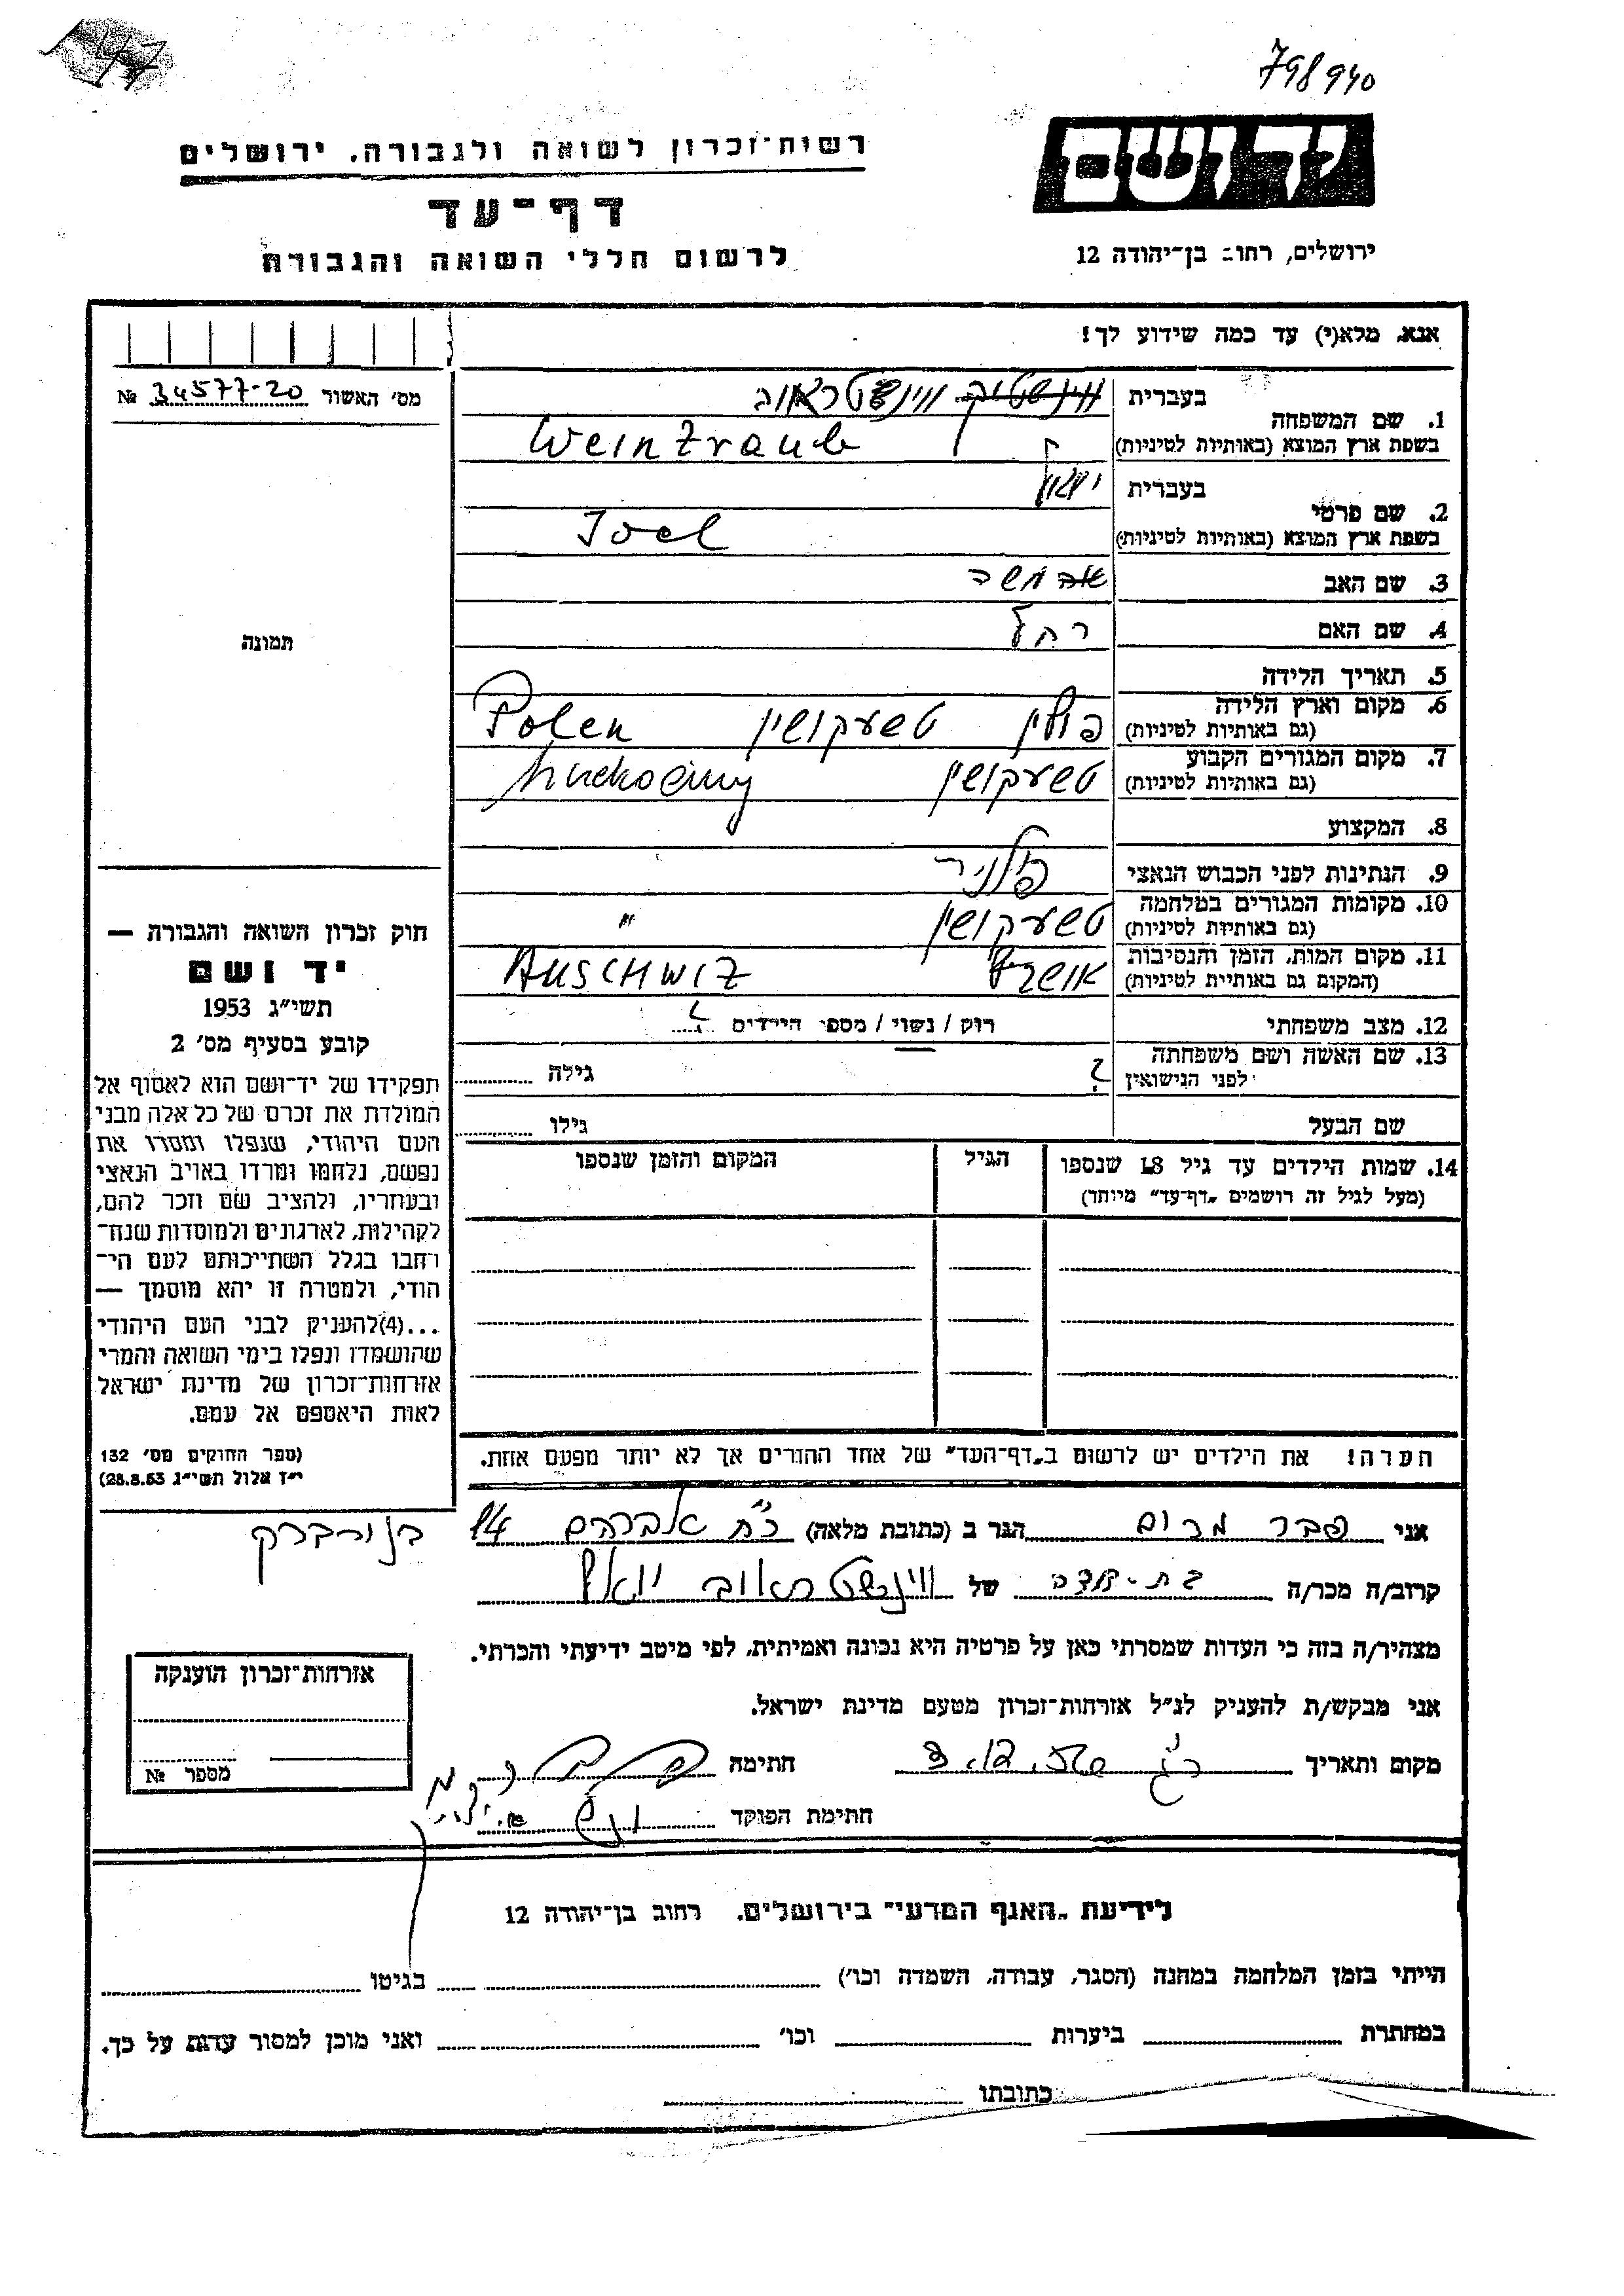 47
798940
יד ושם
רשות־זכרון לשואה ולגבורה, ירושלים
דף־עד
לרשום חללי השואה והגבורה
ירושלים, רחוב בן־יהודה 12
אנא, מלא(י) עד כמה שידוע לך!
מס׳ האשור 34577-20 №
1. שם המשפחה
בעברית ווינשטראוב
בשפת ארץ המוצא (באותיות לטיניות) Weintraub
2. שם פרטי
בעברית יואל
בשפת ארץ המוצא (באותיות לטיניות) Joel
3. שם האב משה
4. שם האם רחל
5. תאריך הלידה
6. מקום וארץ הלידה (גם באותיות לטיניות) פולין טשעקושין Polen
7. מקום המגורים הקבוע (גם באותיות לטיניות) טשעקושין
8. המקצוע
9. הנתינות לפני הכבוש הנאצי
10. מקומות המגורים במלחמה (גם באותיות לטיניות) טשעקושין "
11. מקום המות, הזמן והנסיבות (המקום גם באותיות לטיניות) AUSCHWIZ
12. מצב משפחתי רווק / נשוי / מספר הילדים ?
13. שם האשה ושם משפחתה לפני הנישואין ? גילה
שם הבעל גילו
14. שמות הילדים עד גיל 18 שנספו
(מעל לגיל זה רושמים „דף־עד״ מיוחד)
הגיל
המקום והזמן שנספו
הערה! את הילדים יש לרשום ב„דף־העד״ של אחד ההורים אך לא יותר מפעם אחת.
תמונה
חוק זכרון השואה והגבורה —
יד ושם
תשי״ג 1953
קובע בסעיף מס׳ 2
תפקידו של יד־ושם הוא לאסוף אל
המולדת את זכרם של כל אלה מבני
העם היהודי, שנפלו ומסרו את
נפשם, נלחמו ומרדו באויב הנאצי
ובעוזריו, ולהציב שם וזכר להם,
לקהילות, לארגונים ולמוסדות שנח־
רבו בגלל השתייכותם לעם הי־
הודי, ולמטרה זו יהא מוסמך —
...(4)להעניק לבני העם היהודי
שהושמדו ונפלו בימי השואה והמרי
אזרחות־זכרון של מדינת ישראל
לאות היאספם אל עמם.
(ספר החוקים מס׳ 132
י״ז אלול תשי״ג 28.8.53)
אני פבר מרים הגר ב (כתובת מלאה) אברהם 14
קרוב/ה מכר/ה בת-דודה של ווינשטראוב יואל
מצהיר/ה בזה כי העדות שמסרתי כאן על פרטיה היא נכונה ואמיתית, לפי מיטב ידיעתי והכרתי.
אני מבקש/ת להעניק לנ״ל אזרחות־זכרון מטעם מדינת ישראל.
מקום ותאריך חתימה
חתימת הפוקד
אזרחות־זכרון הוענקה
מספר №
לידיעת „האגף המדעי״ בירושלים, רחוב בן־יהודה 12
הייתי בזמן המלחמה במחנה (הסגר, עבודה, השמדה וכו׳) בגיטו
במחתרת ביערות וכו׳ ואני מוכן למסור עדות על כך.
כתובתו